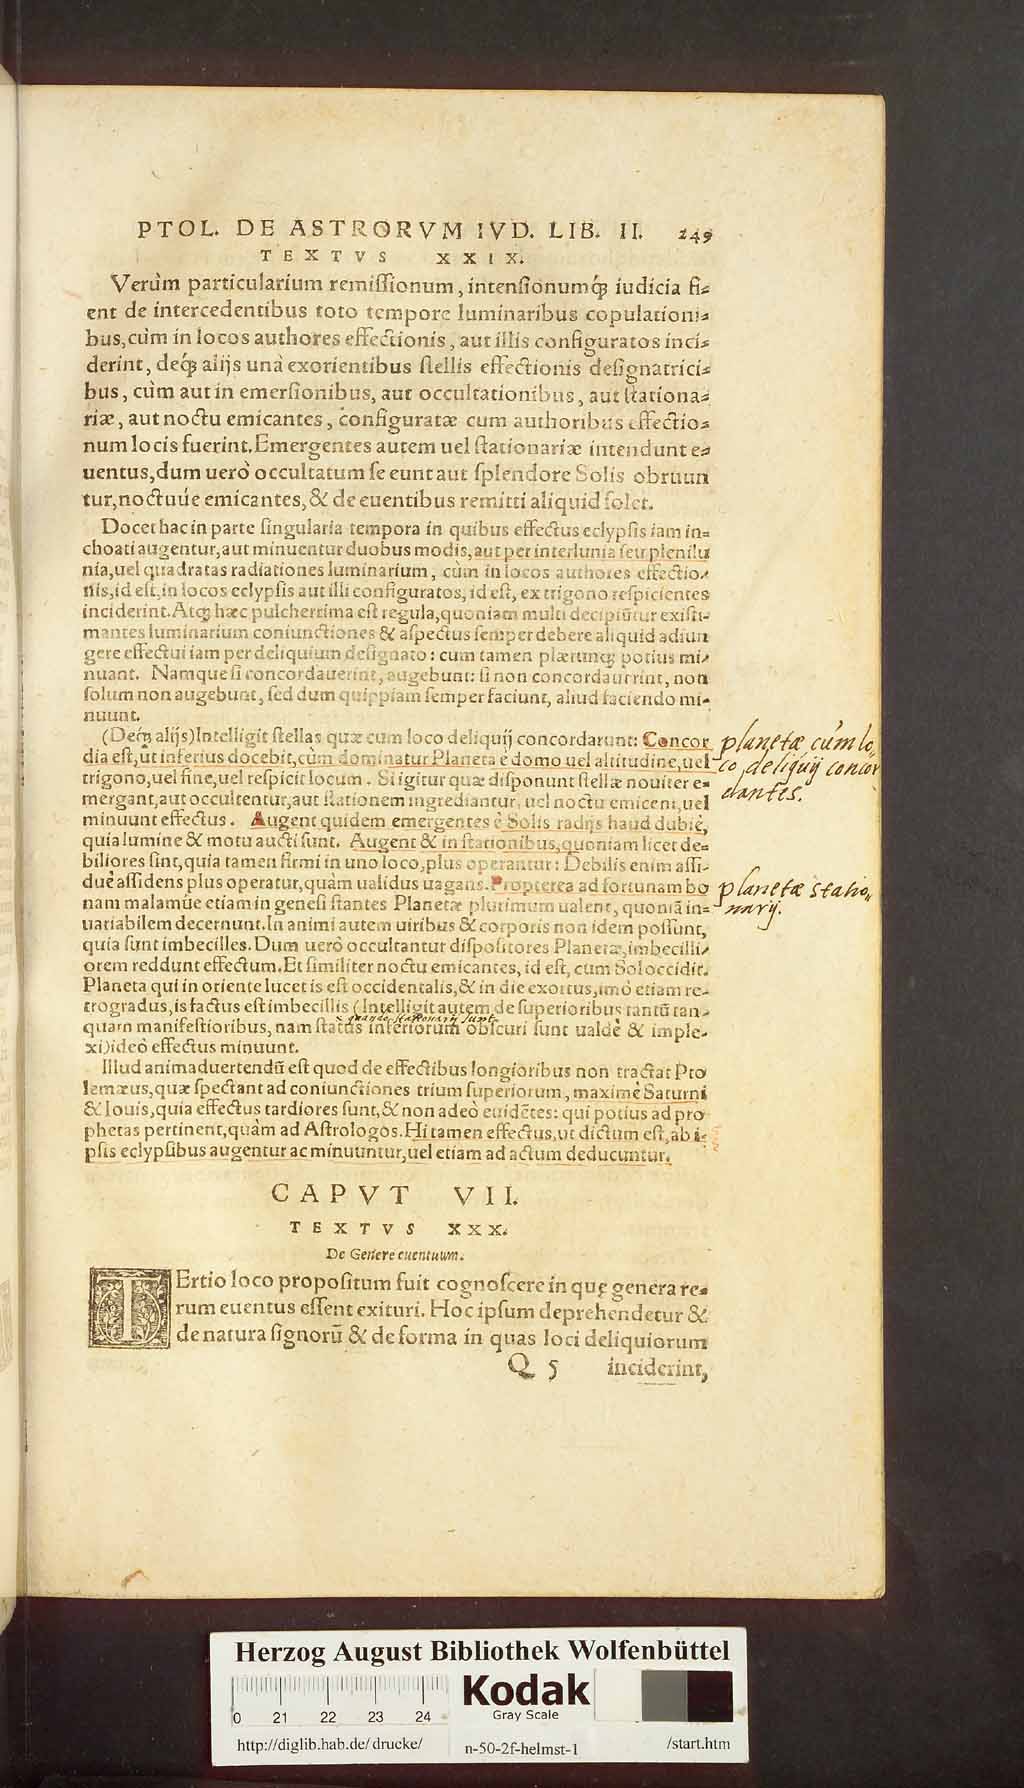 PTOL. DE ASTRORVM IVD. LIB. II. 249
TEXTVS XXIX.
Verùm particularium remissionum, intensionumq́; iudicia fi-
ent de intercedentibus toto tempore luminaribus copulationi-
bus, cùm in locos authores effectionis, aut illis configuratos inci-
derint, deq́; alijs unà exorientibus stellis effectionis designatrici-
bus, cùm aut in emersionibus, aut occultationibus, aut stationa-
riæ, aut noctu emicantes, configuratæ cum authoribus effectio-
num locis fuerint. Emergentes autem uel stationariæ intendunt e-
uentus, dum uerò occultatum se eunt aut splendore Solis obruun
tur, noctuúe emicantes, & de euentibus remitti aliquid solet.
Docet hac in parte singularia tempora in quibus effectus eclypsis iam in-
choati augentur, aut minuentur duobus modis, aut per interlunia seu plenilu
nia, uel quadratas radiationes luminarium, cùm in locos authores effectio-
nis, id est, in locos eclypsis aut illi configuratos, id est, ex trigono respicientes
inciderint. Atq; hæc pulcherrima est regula, quoniam multi decipiũtur existi-
mantes luminarium coniunctiones & aspectus semper debere aliquid adiun
gere effectui iam per deliquium designato: cum tamen plærunq; potius mi-
nuant. Namque si concordauerint, augebunt: si non concordaurint, non
solum non augebunt, sed dum quippiam semper faciunt, aliud faciendo mi-
nuunt.
(Deq́; alijs) Intelligit stellas quæ cum loco deliquij concordarunt: Concor
dia est, ut inferius docebit, cùm dominatur Planeta è domo uel altitudine, uel
trigono, uel fine, uel respicit locum. Si igitur quæ disponunt stellæ nouiter e-
mergant, aut occultentur, aut stationem ingrediantur, uel noctu emicent, uel
minuunt effectus. Augent quidem emergentes è Solis radijs haud dubiè,
quia lumine & motu aucti sunt. Augent & in stationibus, quoniam licet de-
biliores sint, quia tamen firmi in uno loco, plus operantur: Debilis enim assi-
duè assidens plus operatur, quàm ualidus uagans. Propterea ad fortunam bo
nam malamúe etiam in genesi stantes Planetæ plurimum ualent, quoniã in-
uariabilem decernunt. In animi autem uiribus & corporis non idem possunt,
quia sunt imbecilles. Dum uerò occultantur dispositores Planetæ, imbecilli-
orem reddunt effectum. Et similiter noctu emicantes, id est, cùm Sol occidit.
Planeta qui in oriente lucet is est occidentalis, & in die exortus, imò etiam re-
trogradus, is factus est imbecillis (Intelligit autem de superioribus tantũ tan-
quando stationarij sunt
quam manifestioribus, nam status inferiorum obscuri sunt ualdè & imple-
xi) ideò effectus minuunt.
Illud animaduertendũ est quod de effectibus longioribus non tractat Pto
lemæus, quæ spectant ad coniunctiones trium superiorum, maximè Saturni
& Iouis, quia effectus tardiores sunt, & non adeò euidẽtes: qui potius ad pro
phetas pertinent, quàm ad Astrologos. Hi tamen effectus, ut dictum est, ab i-
psis eclypsibus augentur ac minuuntur, uel etiam ad actum deducuntur.
planetæ cùm lo-
co deliquij concor
dantes.
planetæ statio-
narij.
CAPVT VII.
TEXTVS XXX.
De Genere euentuum.
TErtio loco propositum fuit cognoscere in quę genera re-
rum euentus essent exituri. Hoc ipsum deprehendetur &
de natura signorũ & de forma in quas loci deliquiorum
Q 5 inciderint,
Herzog August Bibliothek Wolfenbüttel
0 21 22 23 24
Kodak
Gray Scale
http://diglib.hab.de/drucke/ n-50-2f-helmst-1 /start.htm